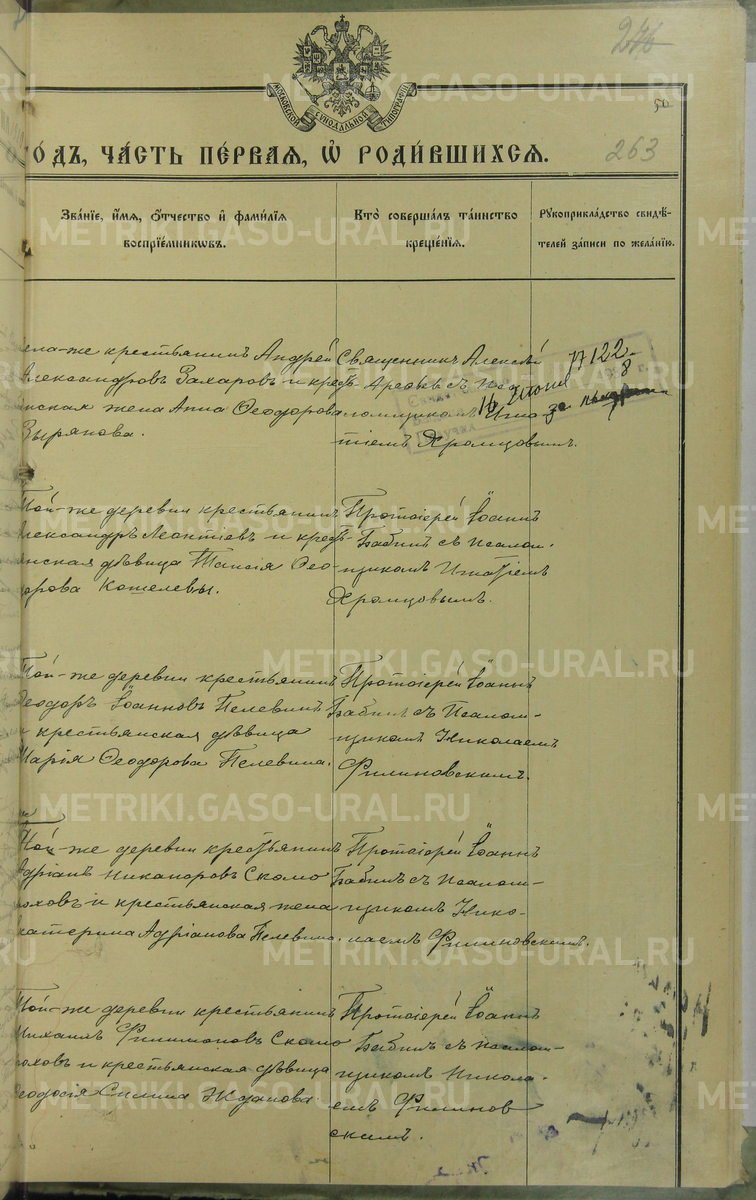 276
50
МОСКОВСКОЙ СѴНОДАЛЬНОЙ ТИПОГРАФІИ
263
ГОДЪ, ЧА́СТЬ ПЕ́РВАЯ, Ѡ҆ РОДИ́ВШИХСѦ.
Зва́нїе, и҆́мѧ, ѻ҆́тчество и҆ фами́лїѧ
воспрїе́мникѡвъ.
Кто̀ соверша́лъ та́инство
креще́нїѧ.
Рꙋкоприкла́дство свидѣ́-
телей за́писи по жела́нїю.
села-же крестьянинъ Андрей
Александровъ Захаровъ и кресть-
янская жена Анна Ѳеодорова
Зырянова.
Священникъ Алексѣй
Арефьевъ съ Пса-
ломщикомъ Игна-
тіемъ Храмцовымъ.
16 Іюня
Той-же деревни крестьянинъ
Александръ Леонтіевъ и кресть-
янская дѣвица Таисія Ѳео-
дорова Кошелевы.
Протоіерей Іоаннъ
Бабинъ съ псалом-
щикомъ Игнатіемъ
Храмцовымъ.
Той-же деревни крестьянинъ
Ѳеодоръ Іоанновъ Пелевинъ
и крестьянская дѣвица
Марія Ѳеодорова Пелевина.
Протоіерей Іоаннъ
Бабинъ съ Псалом-
щикомъ Николаемъ
Филиновскимъ.
Той-же деревни крестьянинъ
Адріанъ Никаноровъ Скомо
роховъ и крестьянская жена
Екатерина Адріанова Пелевина.
Протоіерей Іоаннъ
Бабинъ съ Псалом-
щикомъ Нико-
лаемъ Филиновскимъ.
Той-же деревни крестьянинъ
Михаилъ Филимоновъ Скомо
роховъ и крестьянская дѣвица
Ѳеодосія Силина Жданова.
Протоіерей Іоаннъ
Бабинъ съ псалом-
щикомъ Никола-
емъ Филинов
скимъ.
METRIKI.GASO-URAL.RU